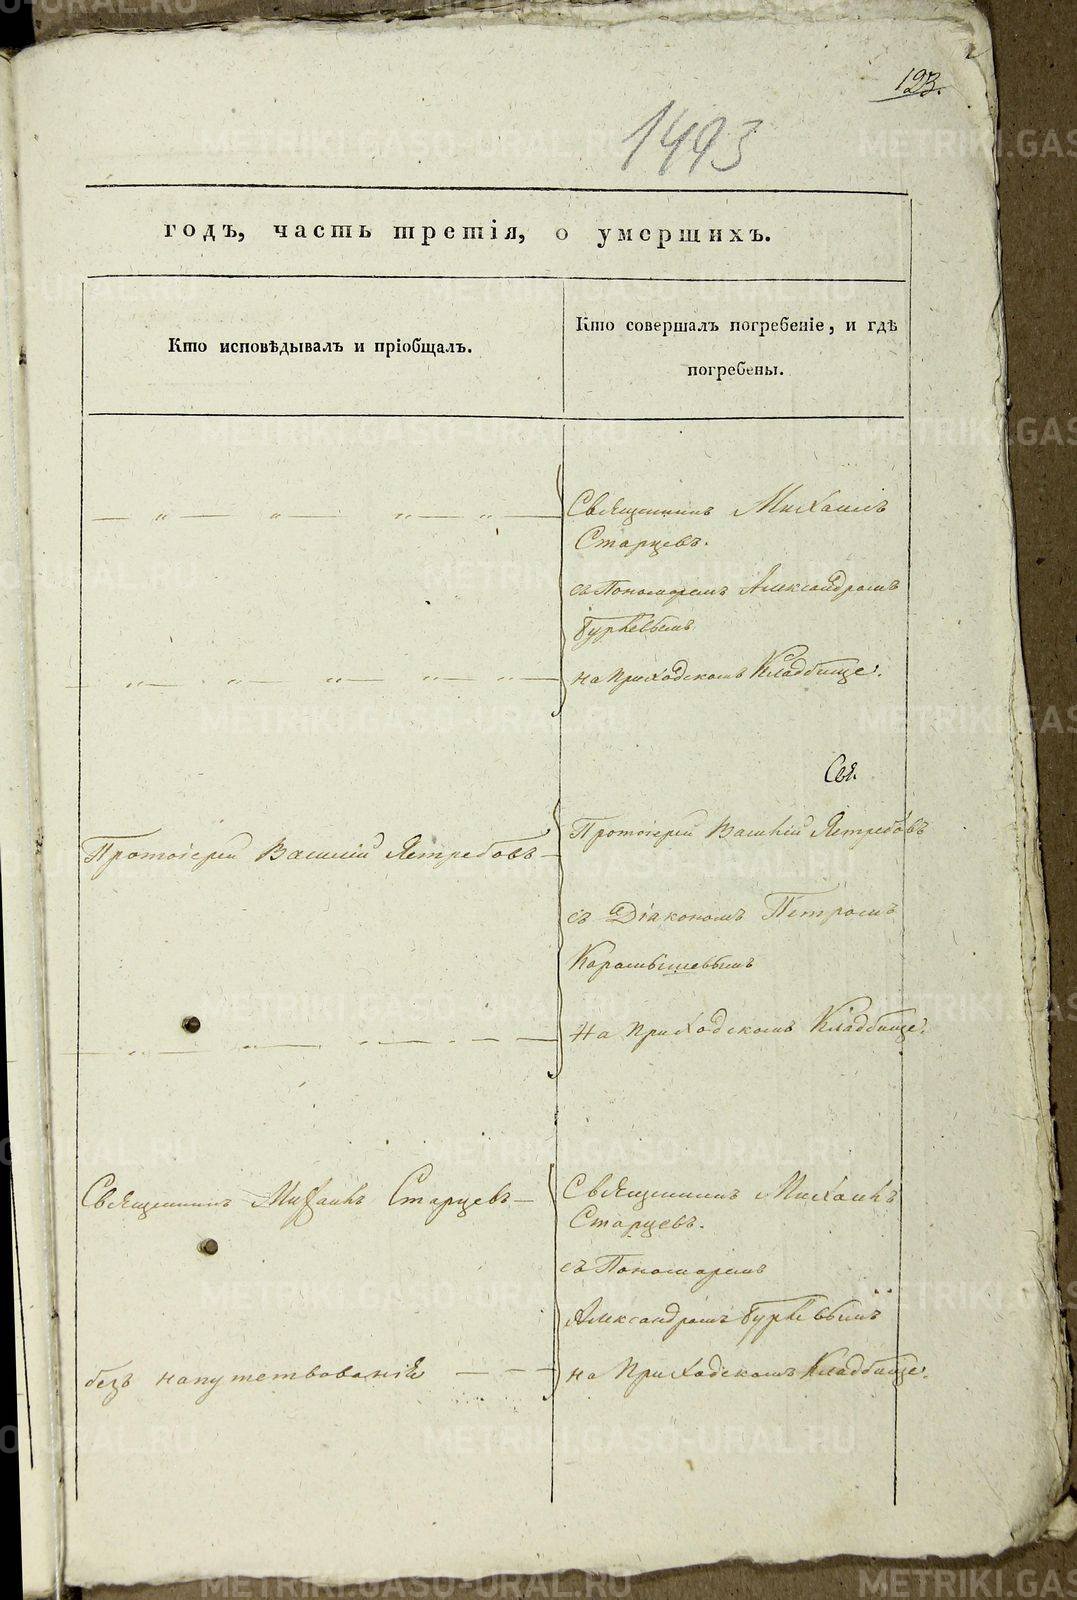 123.
1493
годъ, часть третія, о умершихъ.
Кто исповѣдывалъ и пріобщалъ.
Кто совершалъ погребеніе, и гдѣ
погребены.
Священникъ Михаилъ
Старцевъ.
съ Пономаремъ Александромъ
Гурьевымъ
на приходскомъ Кладбище.
Свя.
Протоіерей Василій Ястребовъ
Протоіерей Василій Ястребовъ
съ Діакономъ Петромъ
Карамышевымъ
На приходскомъ Кладбище.
Священникъ Михаилъ Старцевъ
Священникъ Михаилъ
Старцевъ.
съ Пономаремъ
Александромъ Гурьевымъ
безъ напутствованія
на Приходскомъ Кладбище.
METRIKI.GASO-URAL.RU